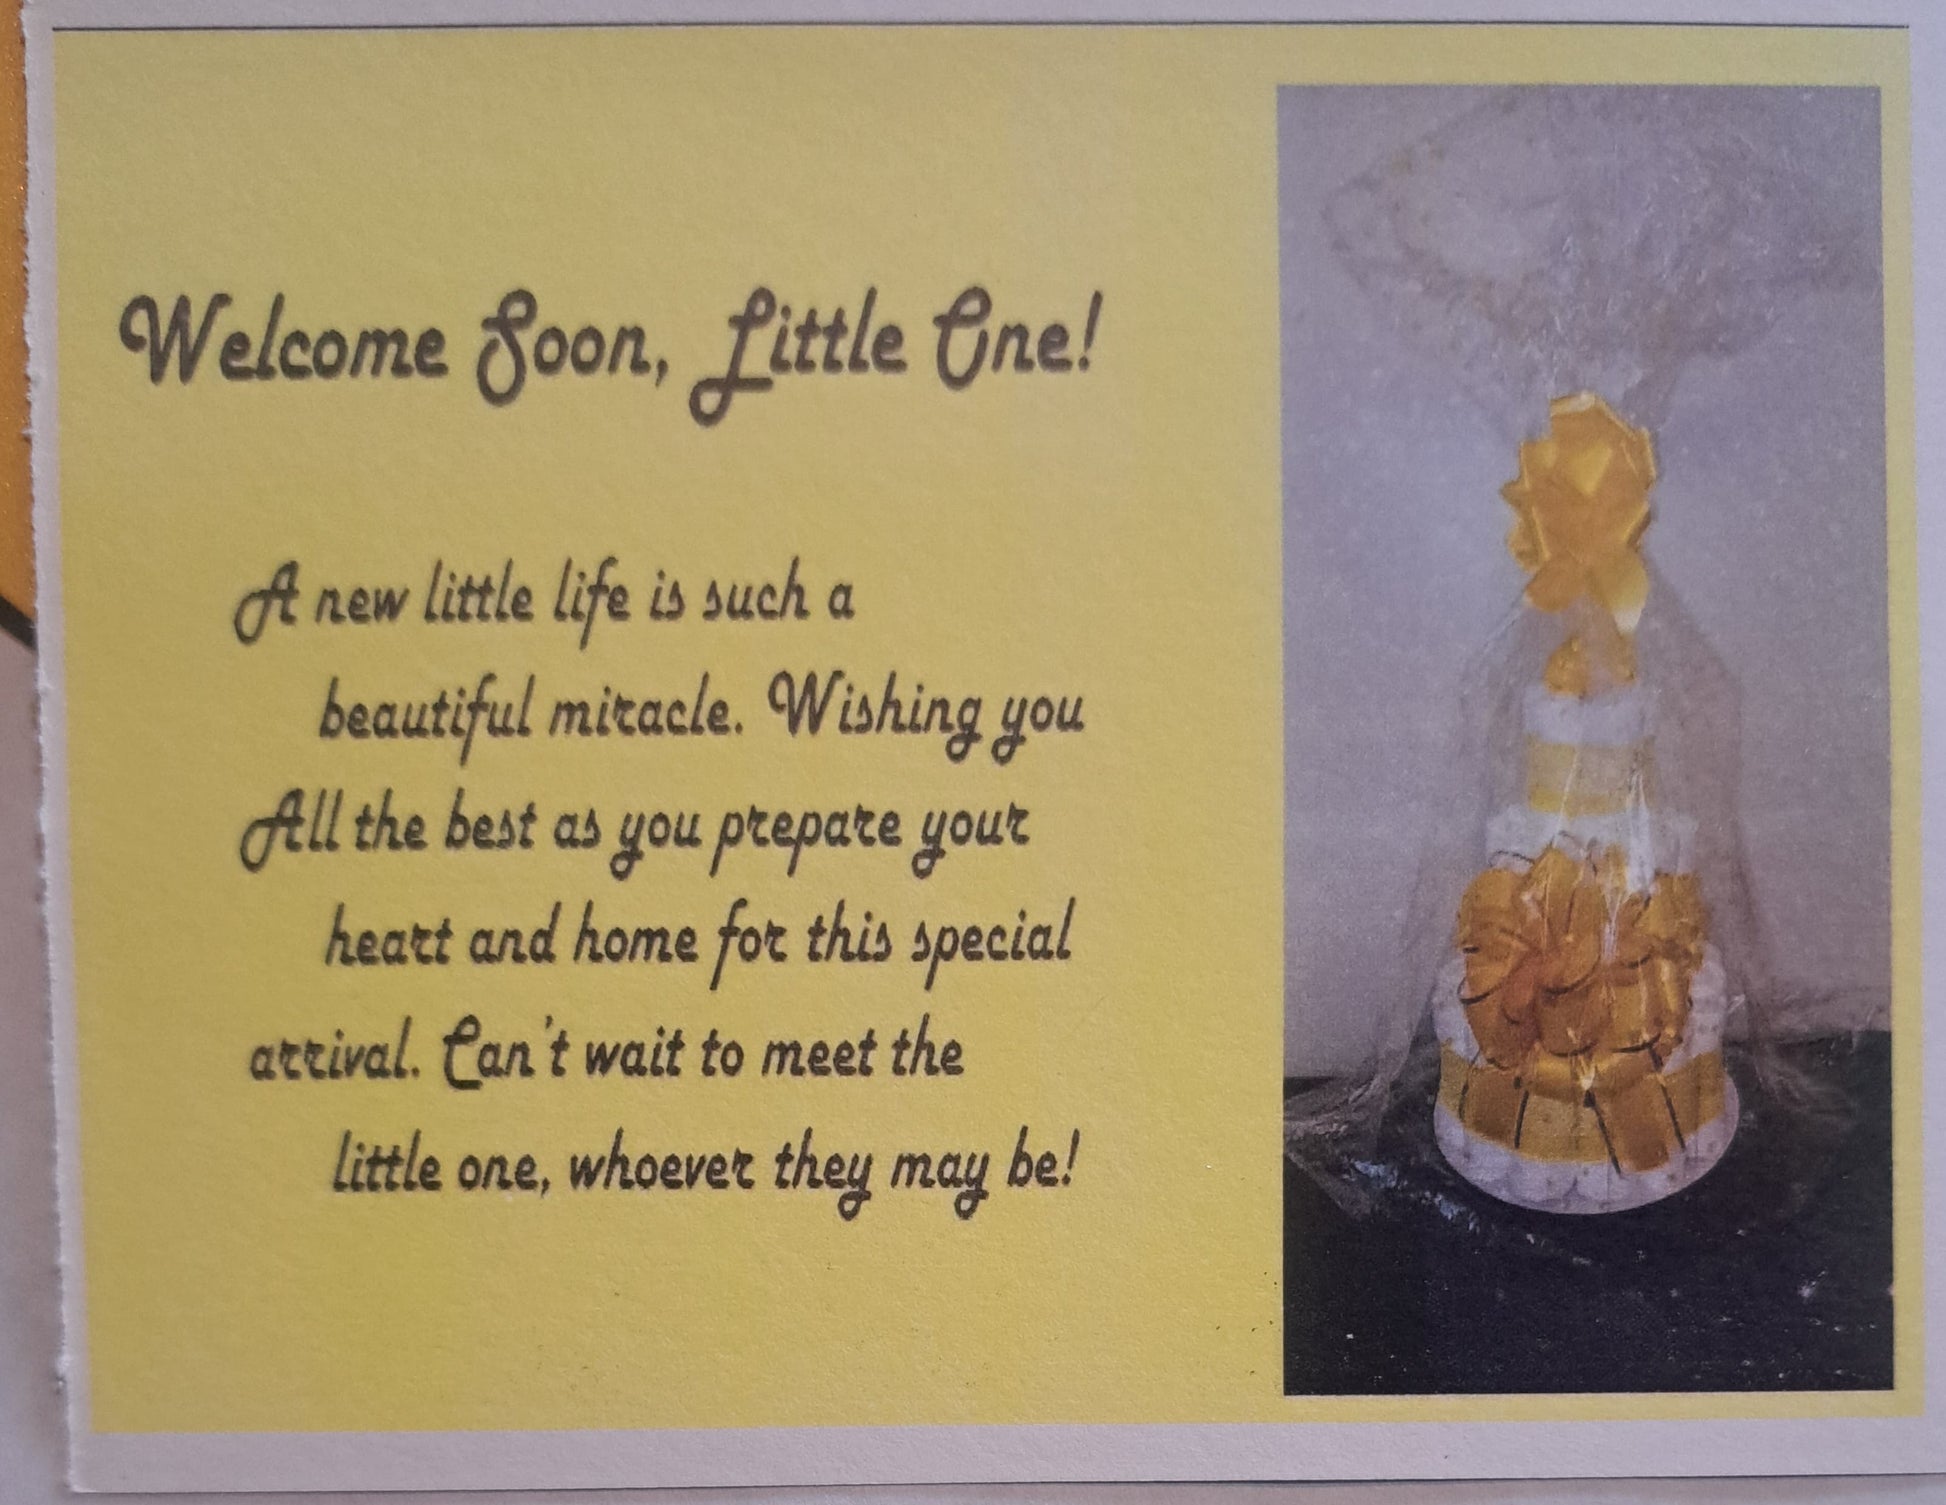 Welcome Soon, Little One!
A new little life is such a
beautiful miracle. Wishing you
All the best as you prepare your
heart and home for this special
arrival. Can't wait to meet the
little one, whoever they may be!